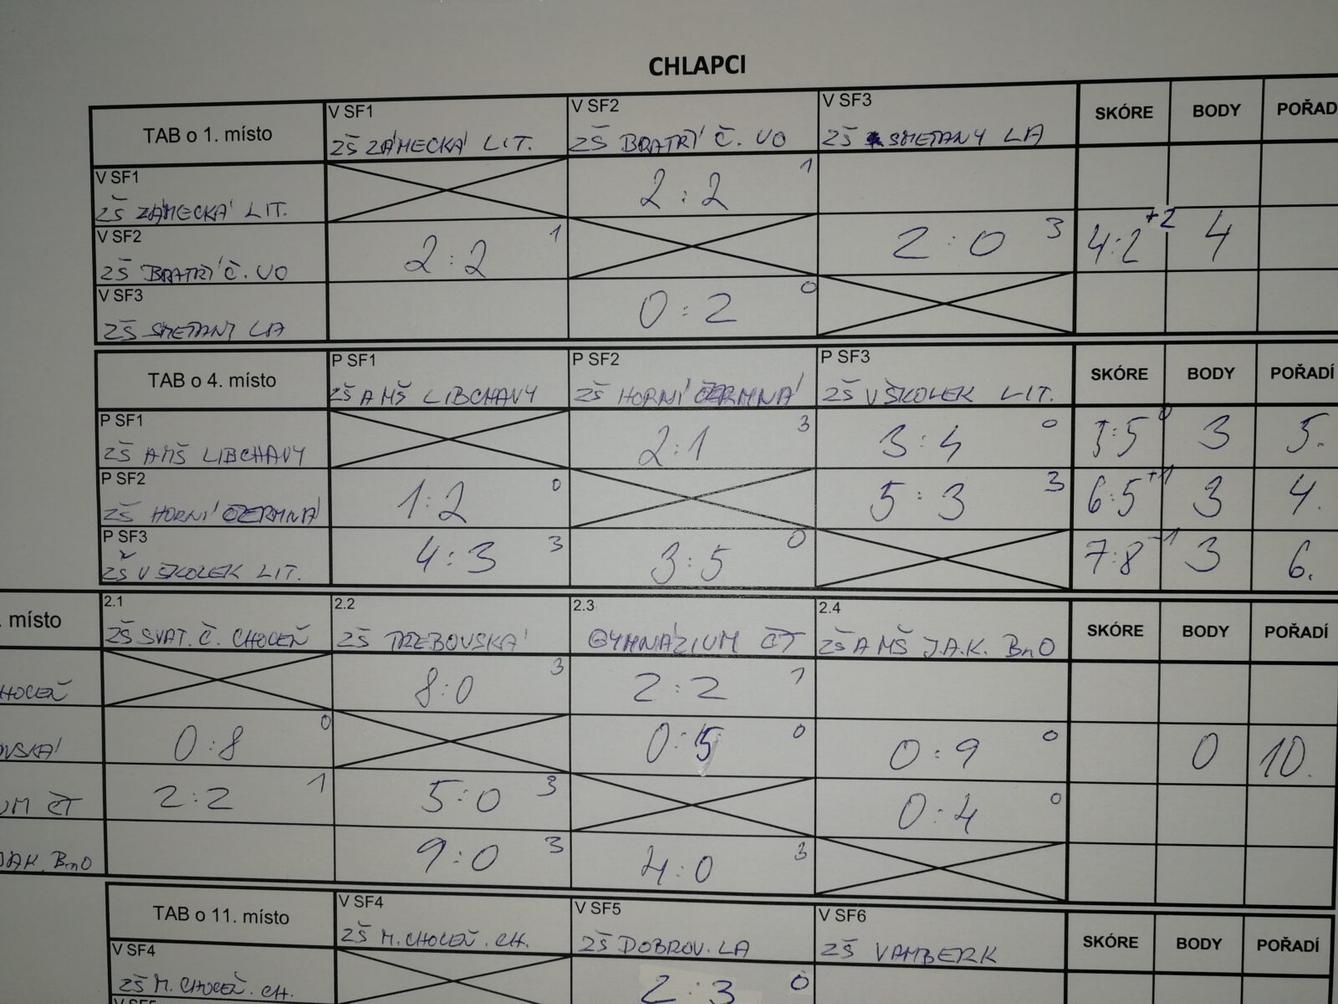 CHLAPCI
TAB o 1. místo V SF1 ZŠ ZÁMECKÁ LIT. V SF2 ZŠ BRATŘÍ Č. UO V SF3 ZŠ SMETANY LA SKÓRE BODY POŘAD
V SF1 ZŠ ZÁMECKÁ LIT. 2:2 1
V SF2 ZŠ BRATŘÍ Č. UO 2:2 1 2:0 3 4:2 +2 4
V SF3 ZŠ SMETANY LA 0:2 0
TAB o 4. místo P SF1 ZŠ A MŠ LIBCHAVY P SF2 ZŠ HORNÍ ČERMNÁ P SF3 ZŠ V ŠKOLEK LIT. SKÓRE BODY POŘADÍ
P SF1 ZŠ A MŠ LIBCHAVY 2:1 3 3:4 0 5:5 0 3 5.
P SF2 ZŠ HORNÍ ČERMNÁ 1:2 0 5:3 3 6:5 +1 3 4.
P SF3 ZŠ V ŠKOLEK LIT. 4:3 3 3:5 0 7:8 -1 3 6.
. místo 2.1 ZŠ SVAT. Č. CHOCEŇ 2.2 ZŠ TŘEBOVSKÁ 2.3 GYMNÁZIUM ČT 2.4 ZŠ A MŠ J.A.K. BnO SKÓRE BODY POŘADÍ
HOCEŇ 8:0 3 2:2 1
OVSKÁ 0:8 0 0:5 0 0:9 0 0 10.
UM ČT 2:2 1 5:0 3 0:4 0
JAK. BnO 9:0 3 4:0 3
TAB o 11. místo V SF4 ZŠ M. CHOCEŇ. CH. V SF5 ZŠ DOBROV. LA V SF6 ZŠ VAMBERK SKÓRE BODY POŘADÍ
V SF4 ZŠ M. CHOCEŇ. CH. 2:3 0